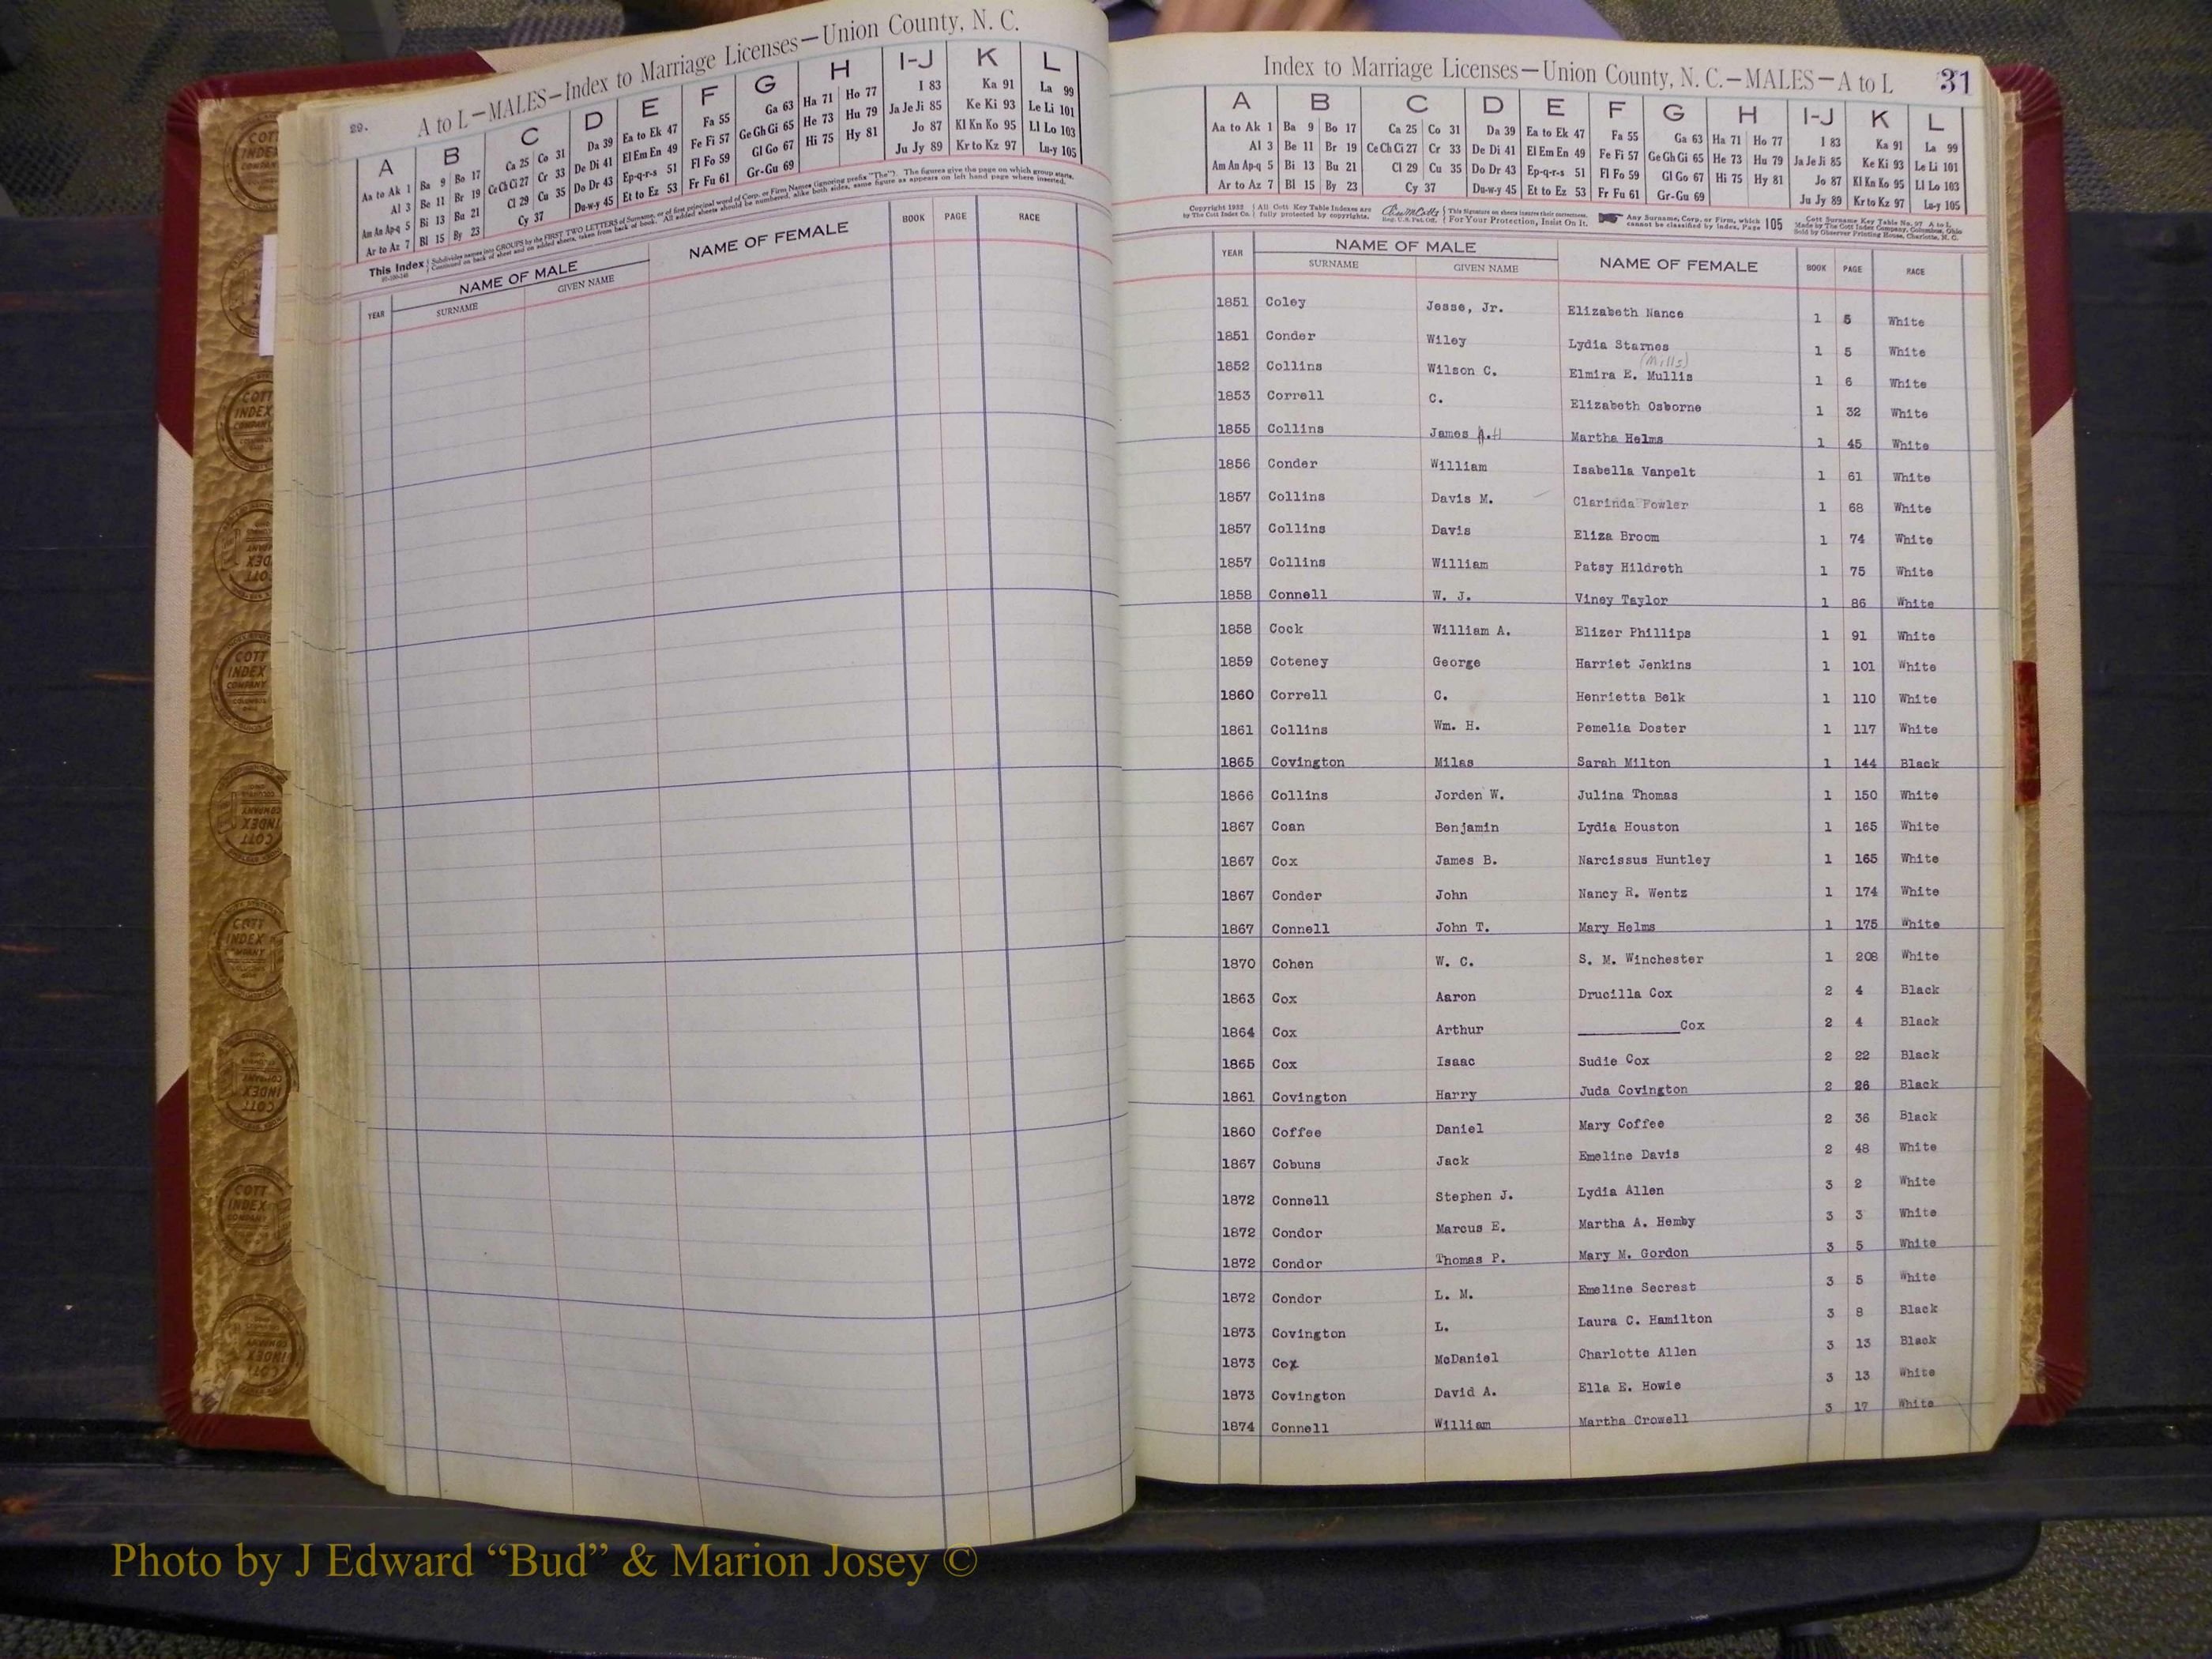 29.
A to L—MALES—Index to Marriage Licenses—Union County, N. C.
A B C D E F G H I-J K L
Aa to Ak 1 Ba 9 Bo 17 Ca 25 Co 31 Da 39 Ea to Ek 47 Fa 55 Ga 63 Ha 71 Ho 77 I 83 Ka 91 La 99
Al 3 Be 11 Br 19 Ce Ch Ci 27 Cr 33 De Di 41 El Em En 49 Fe Fi 57 Ge Gh Gi 65 He 73 Hu 79 Ja Je Ji 85 Ke Ki 93 Le Li 101
Am An Ap-q 5 Bi 13 Bu 21 Cl 29 Cu 35 Do Dr 43 Ep-q-r-s 51 Fl Fo 59 Gl Go 67 Hi 75 Hy 81 Jo 87 Kl Kn Ko 95 Ll Lo 103
Ar to Az 7 Bl 15 By 23 Cy 37 Du-w-y 45 Et to Ez 53 Fr Fu 61 Gr-Gu 69 Ju Jy 89 Kr to Kz 97 Lu-y 105
This Index Subdivides names into GROUPS by the FIRST TWO LETTERS of Surname, or of first principal word of Corp. or Firm Names (ignoring prefix "The"). The figures give the page on which group starts.
Continued on back of sheet and on added sheets, taken from back of book. All added sheets should be numbered, alike both sides, same figure as appears on left hand page where inserted.
YEAR NAME OF MALE NAME OF FEMALE BOOK PAGE RACE
SURNAME GIVEN NAME
Index to Marriage Licenses—Union County, N. C.—MALES—A to L 31
A B C D E F G H I-J K L
Aa to Ak 1 Ba 9 Bo 17 Ca 25 Co 31 Da 39 Ea to Ek 47 Fa 55 Ga 63 Ha 71 Ho 77 I 83 Ka 91 La 99
Al 3 Be 11 Br 19 Ce Ch Ci 27 Cr 33 De Di 41 El Em En 49 Fe Fi 57 Ge Gh Gi 65 He 73 Hu 79 Ja Je Ji 85 Ke Ki 93 Le Li 101
Am An Ap-q 5 Bi 13 Bu 21 Cl 29 Cu 35 Do Dr 43 Ep-q-r-s 51 Fl Fo 59 Gl Go 67 Hi 75 Hy 81 Jo 87 Kl Kn Ko 95 Ll Lo 103
Ar to Az 7 Bl 15 By 23 Cy 37 Du-w-y 45 Et to Ez 53 Fr Fu 61 Gr-Gu 69 Ju Jy 89 Kr to Kz 97 Lu-y 105
Copyright 1932 All Cott Key Table Indexes are This Signature on sheets insures their correctness. Any Surname, Corp. or Firm, which 105 Cott Surname Key Table No. 97 A to L
by The Cott Index Co. fully protected by copyrights. Reg. U.S. Pat. Off. For Your Protection, Insist On It. cannot be classified by Index, Page Made by The Cott Index Company, Columbus, Ohio
Sold by Observer Printing House, Charlotte, N. C.
YEAR NAME OF MALE NAME OF FEMALE BOOK PAGE RACE
SURNAME GIVEN NAME
1851 Coley Jesse, Jr. Elizabeth Nance 1 5 White
1851 Conder Wiley Lydia Starnes 1 5 White
(Mills)
1852 Collins Wilson C. Elmira E. Mullis 1 6 White
1853 Correll C. Elizabeth Osborne 1 32 White
1855 Collins James A.H Martha Helms 1 45 White
1856 Conder William Isabella Vanpelt 1 61 White
1857 Collins Davis M. Clarinda Fowler 1 68 White
1857 Collins Davis Eliza Broom 1 74 White
1857 Collins William Patsy Hildreth 1 75 White
1858 Connell W. J. Viney Taylor 1 86 White
1858 Cock William A. Elizer Phillips 1 91 White
1859 Coteney George Harriet Jenkins 1 101 White
1860 Correll C. Henrietta Belk 1 110 White
1861 Collins Wm. H. Pemelia Doster 1 117 White
1865 Covington Milas Sarah Milton 1 144 Black
1866 Collins Jorden W. Julina Thomas 1 150 White
1867 Coan Benjamin Lydia Houston 1 165 White
1867 Cox James B. Narcissus Huntley 1 165 White
1867 Conder John Nancy R. Wentz 1 174 White
1867 Connell John T. Mary Helms 1 175 White
1870 Cohen W. C. S. M. Winchester 1 208 White
1863 Cox Aaron Drucilla Cox 2 4 Black
1864 Cox Arthur ____________Cox 2 4 Black
1865 Cox Isaac Sudie Cox 2 22 Black
1861 Covington Harry Juda Covington 2 26 Black
1860 Coffee Daniel Mary Coffee 2 36 Black
1867 Cobuns Jack Emeline Davis 2 48 White
1872 Connell Stephen J. Lydia Allen 3 2 White
1872 Condor Marcus E. Martha A. Hemby 3 3 White
1872 Condor Thomas P. Mary M. Gordon 3 5 White
1872 Condor L. M. Emeline Secrest 3 5 White
1873 Covington L. Laura C. Hamilton 3 8 Black
1873 Cox McDaniel Charlotte Allen 3 13 Black
1873 Covington David A. Ella E. Howie 3 13 White
1874 Connell William Martha Crowell 3 17 White
Photo by J Edward “Bud” & Marion Josey ©